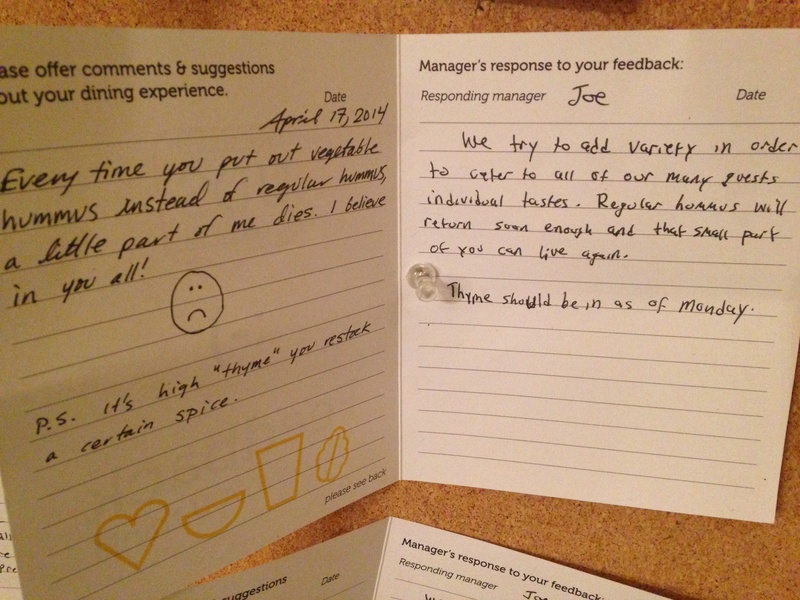 ase offer comments & suggestions
out your dining experience.
Date
April 17, 2014
Every time you put out vegetable
hummus instead of regular hummus,
a little part of me dies. I believe
in you all!
P.S. It's high "thyme" you restock
a certain spice.
please see back
Manager's response to your feedback:
Responding manager Joe Date
We try to add variety in order
to cater to all of our many guests
individual tastes. Regular hummus will
return soon enough and that small part
of you can live again.
Thyme should be in as of Monday.
suggestions
Date
Manager's response to your feedback:
Responding manager Joe